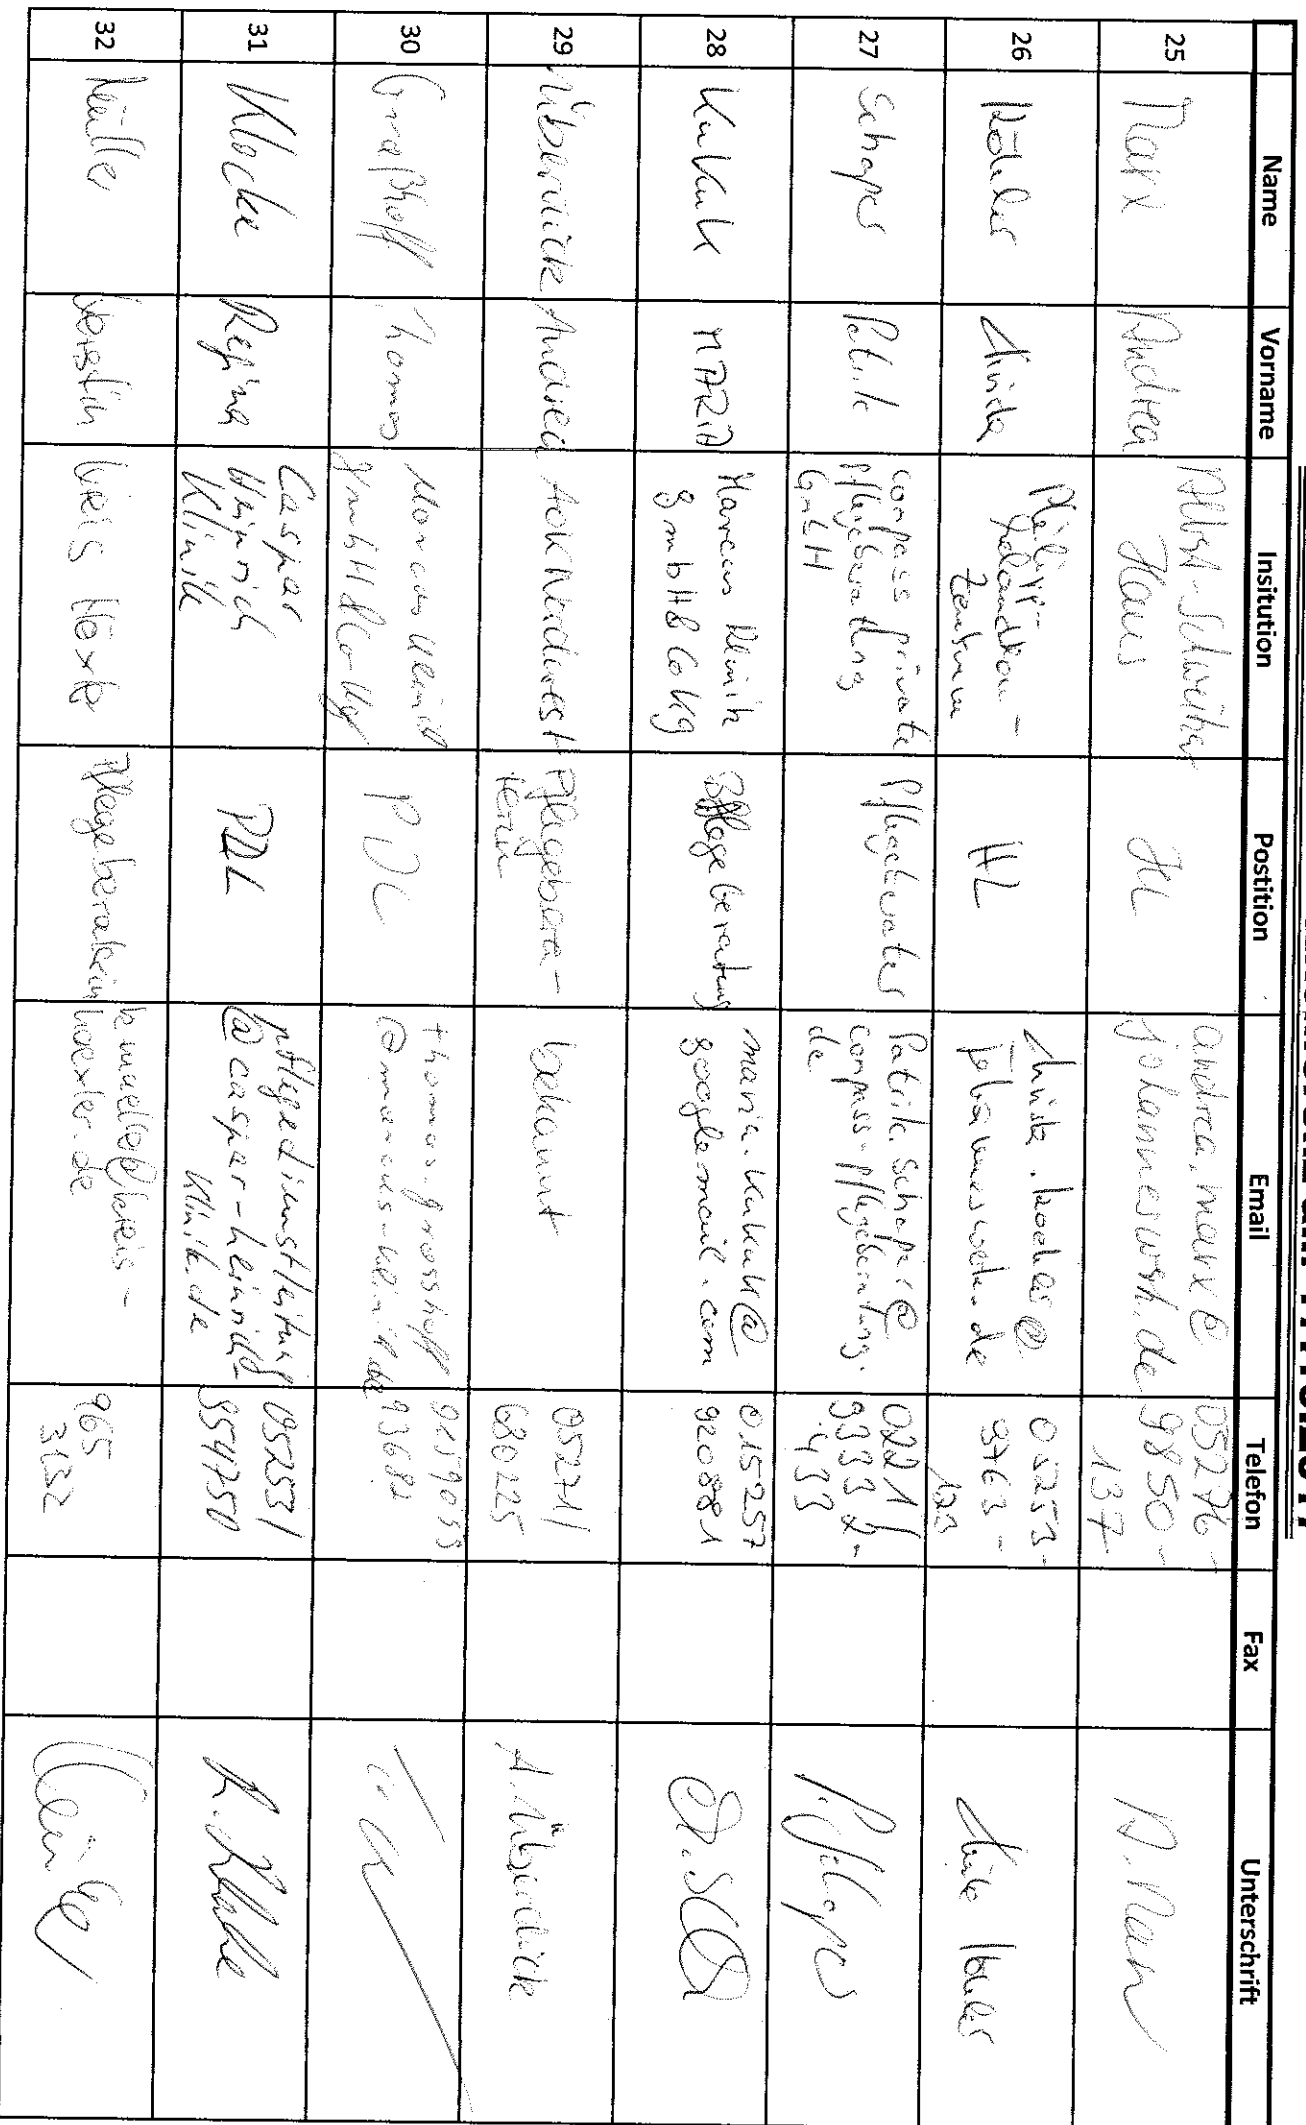 Name Vorname Insitution Postition Email Telefon Fax Unterschrift
25 Marx Andrea Albert-Schweitzer
Haus HL andrea.marx@
johanneswerk.de 05276-
9850-
137 A. Marx
26 Köhler Philipp-
Melanchthon-
Zentrum HL
johanneswerk.de 05253-
9763-
123
27 Schaper Patrik compass private
pflegeberatung
GmbH Pflegeberater Patrik.Schaper@
compass-pflegeberatung.
de 0221/
93332-
433 P. Schaper
28 Kukuk MARIA Marcus Klinik
GmbH & Co KG Pflegeberatung maria.kukuk@
googlemail.com 015257
920881
29 Andrea AOK Nordwest Pflegebera-
terin bekannt 05271/
680225
30 Großhoff Thomas Marcus Klinik
GmbH & Co Kg PDL thomas.grosshoff
@marcus-klinik.de
93682
31 Klocke Regina Caspar
Heinrich
Klinik PDL pflegedienstleitung
@caspar-heinrich-
klinik.de 05253/
9554750 R. Klocke
32 Müller Kerstin Kreis Höxter Pflegeberaterin k.mueller@kreis-
hoexter.de 965
3132